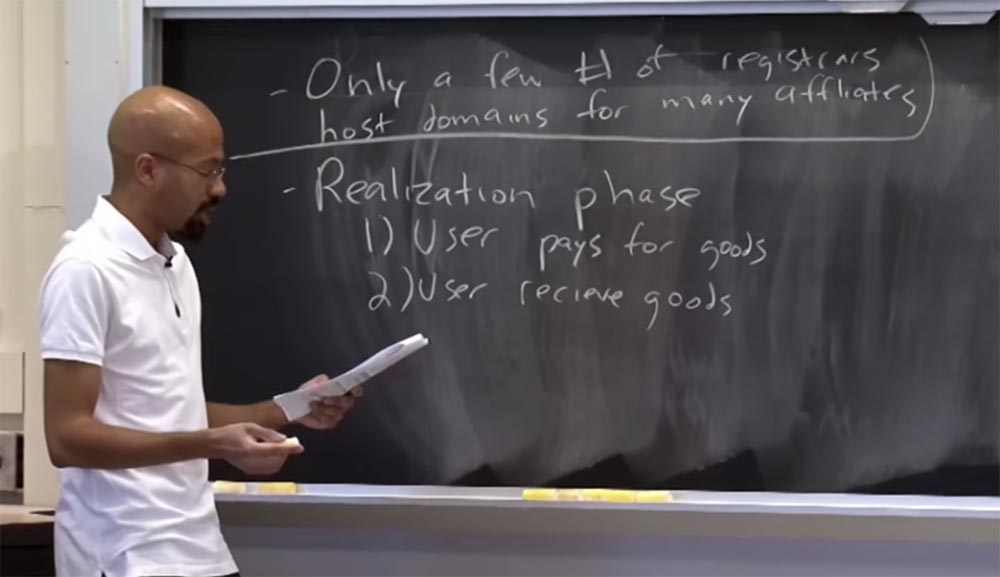 - Only a few # of registrars
host domains for many affliates
- Realization phase
1) User pays for goods
2) User recieve goods